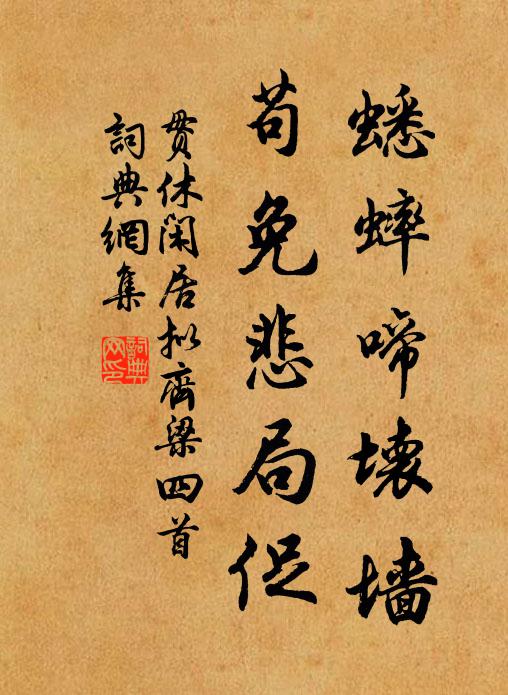 蟋蟀啼壞墻
苟免悲局促
貫休閑居拟齊梁四首
詞典網集
詞典網印